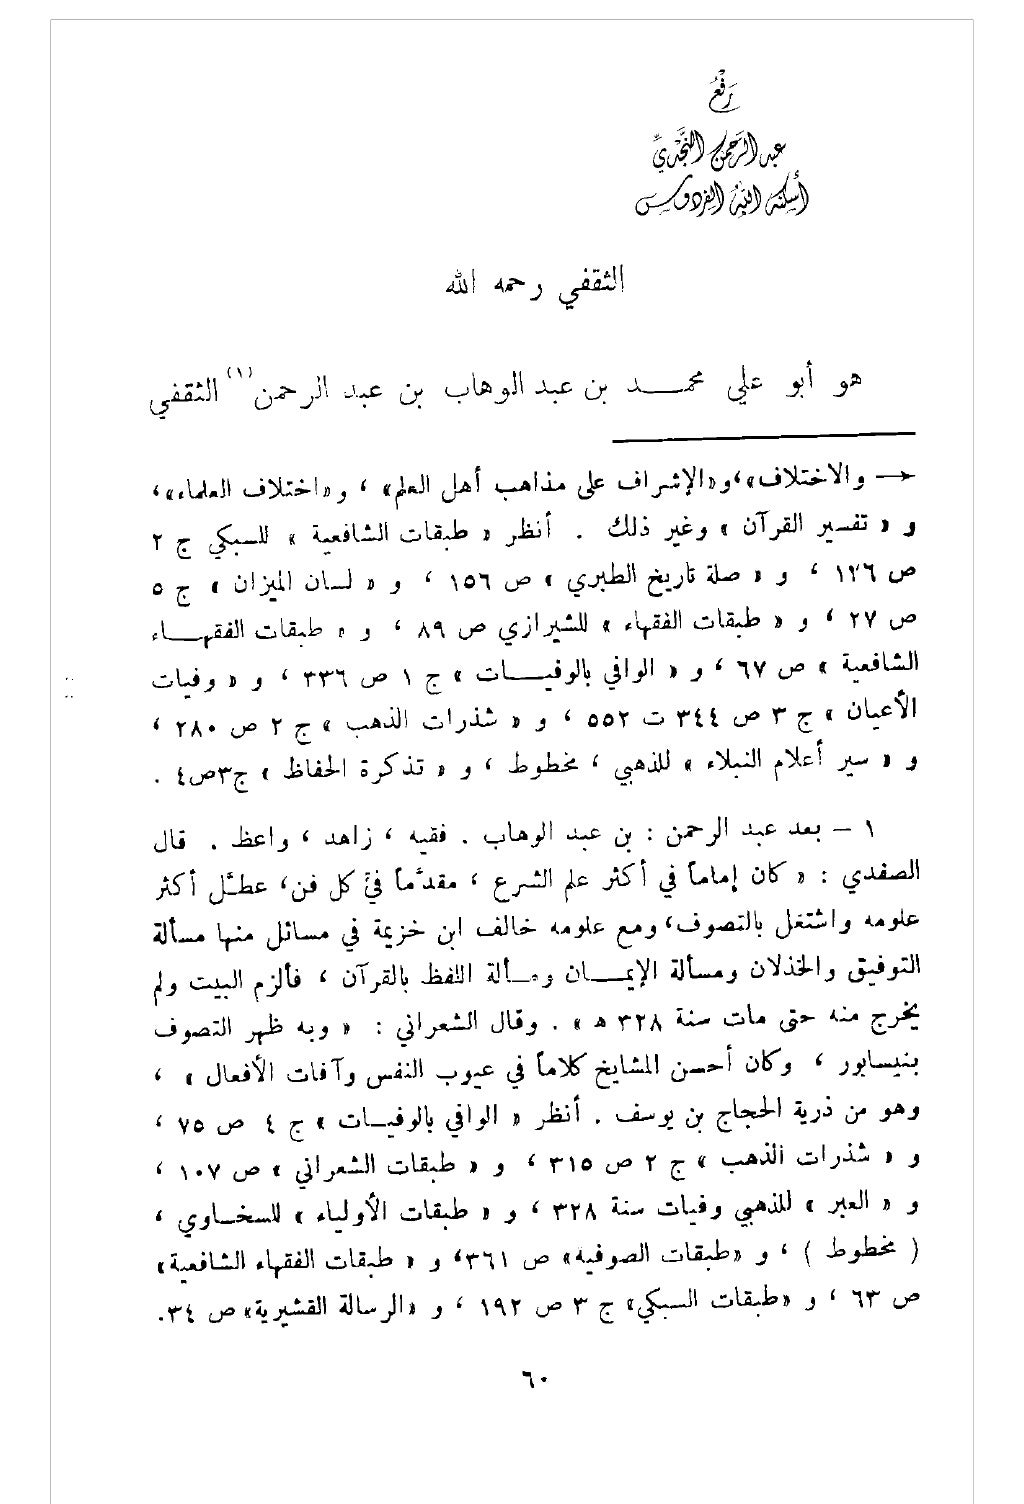 رفع
عبد الرحمن النجدي
أسكنه الله الفردوس
الثقفي رحمه الله
هو أبو علي محمـــد بن عبد الوهاب بن عبد الرحمن (١) الثقفي
← والاختلاف»، و«الإشراف على مذاهب أهل العلم» ، و«اختلاف العلماء»،
و « تفسير القرآن » وغير ذلك . أنظر « طبقات الشافعية » للسبكي ج ٢
ص ١٢٦ ، و « صلة تاريخ الطبري » ص ١٥٦ ، و « لسان الميزان » ج ٥
ص ٢٧ ، و « طبقات الفقهاء » للشيرازي ص ٨٩ ، و « طبقات الفقهـــاء
الشافعية » ص ٦٧ ، و « الوافي بالوفيـــات » ج ١ ص ٣٣٦ ، و « وفيات
الأعيان » ج ٣ ص ٣٤٤ ت ٥٥٢ ، و « شذرات الذهب » ج ٢ ص ٢٨٠ ،
و « سير أعلام النبلاء » للذهبي ، مخطوط ، و « تذكرة الحفاظ » ج٣ص٤ .
١ – بعد عبد الرحمن : بن عبد الوهاب . فقيه ، زاهد ، واعظ . قال
الصفدي : « كان إماماً في أكثر علم الشرع ، مقدَّماً في كل فن، عطَّل أكثر
علومه واشتغل بالتصوف، ومع علومه خالف ابن خزيمة في مسائل منها مسألة
التوفيق والخذلان ومسألة الإيمـــان ومسألة اللفظ بالقرآن ، فألزم البيت ولم
يخرج منه حتى مات سنة ٣٢٨ ه » . وقال الشعراني : « وبه ظهر التصوف
بنيسابور ، وكان أحسن المشايخ كلاماً في عيوب النفس وآفات الأفعال » ،
وهو من ذرية الحجاج بن يوسف . أنظر « الوافي بالوفيـات » ج ٤ ص ٧٥ ،
و « شذرات الذهب » ج ٢ ص ٣١٥ ، و « طبقات الشعراني » ص ١٠٧ ،
و « العبر » للذهبي وفيات سنة ٣٢٨ ، و « طبقات الأولياء » للسخـاوي ،
( مخطوط ) ، و «طبقات الصوفيه» ص ٣٦١، و « طبقات الفقهاء الشافعية»
ص ٦٣ ، و «طبقات السبكي» ج ٣ ص ١٩٢ ، و «الرسالة القشيرية» ص ٣٤.
٦٠